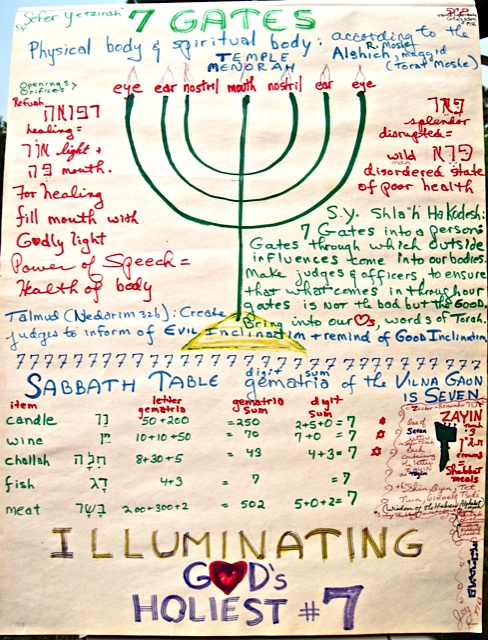 Sefer Yetzirah
7 GATES
Physical body & spiritual body: according to the
R. Moshe
Alshich, maggid
(Torat Moshe)
TEMPLE
MENORAH
Openings
Orifices
eye ear nostril mouth nostril ear eye
Refuah
רפואה
healing=
אור light +
פה mouth.
For healing
fill mouth with
Godly light
Power of Speech =
Health of body
פאר
splendor
disrupted=
wild פרא
man
disordered state
of poor health
S.Y. Shla"h HaKodesh:
7 Gates into a person
Gates through which outside
influences come into our bodies.
Make judges & officers, to ensure
that what comes in through our
gates is NOt the bad but the GOOD.
Bring into our ♥s, words of Torah.
Talmud (Nedarim 32b): Create
judges to inform of EVIL Inclination + remind of Good Inclination
7777777777777777777777777777777777
SABBATH TABLE digit sum gematria of the VILNA GAON
IS SEVEN
item letter gematria gematria sum digit sum
candle נר 50+200 =250 2+5+0=7
wine יין 10+10+50 = 70 7+0=7
challah חלה 8+30+5 = 43 4+3=7
fish דג 4+3 = 7 =7
meat בשר 200+300+2 = 502 5+0+2=7
ZAYIN
Shabbat
meals
ILLUMINATING
GOD's
HOLIEST #7